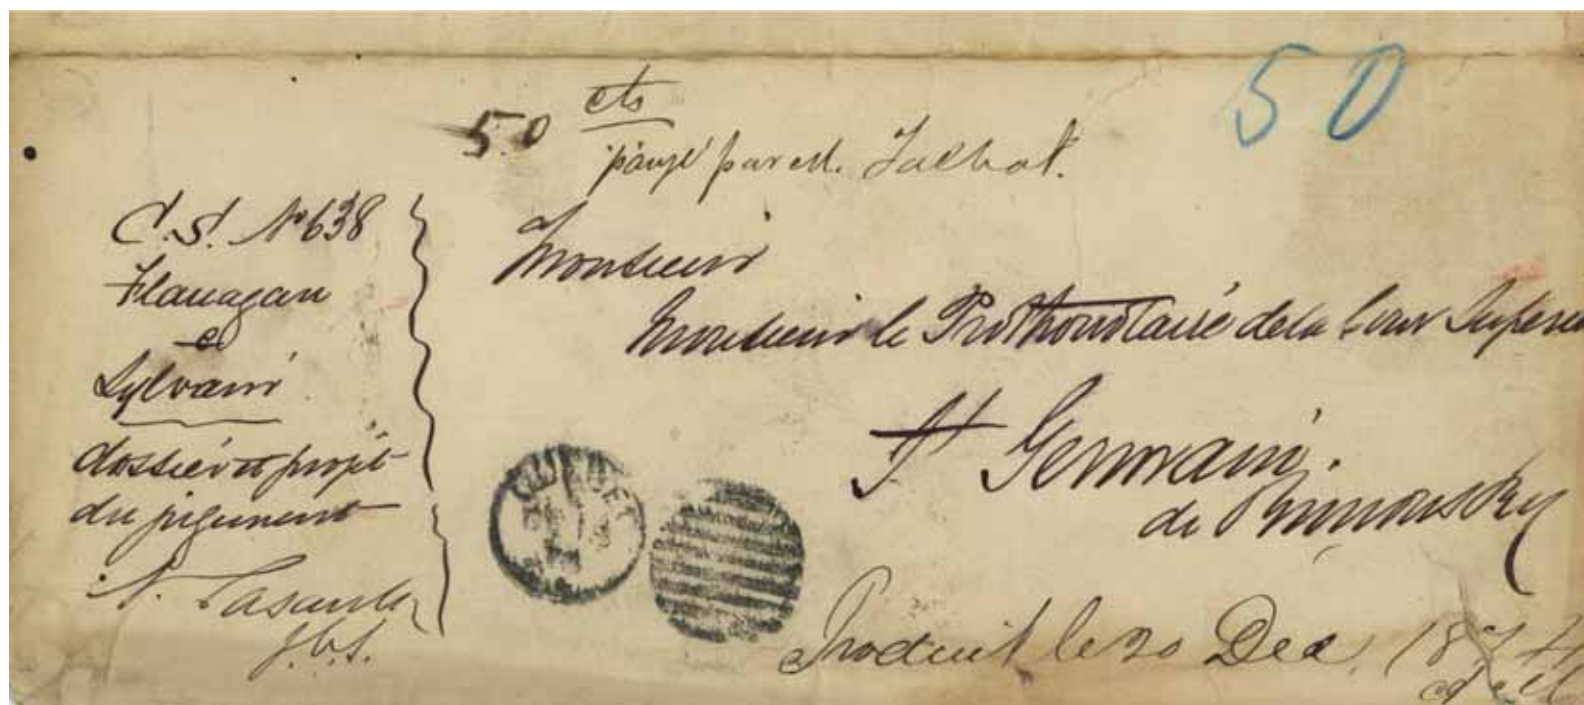 50
50 cts
payé par M. Talbot.
C.S. No 638
Flanagan
c
Sylvain
dossier et projet
du jugement
J.C.S.
A
Monsieur
Monsieur le Prothonotaire de la Cour Superieu
St Germain
de Rimouski
QUEBEC
Produit le 20 Dec. 1874